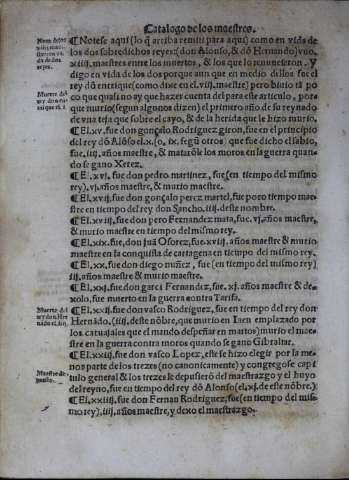 Catalogo de los maestres.
Notese aqui (lo q̃ arriba remiti para aqui) como en vida de
los dos sobredichos reyes (don Alonso, & dõ Hernando) vuo
xiiij. maestres entre los muertos, & los que lo renunciaron. Y
digo en vida de los dos porque aun que en medio dellos fue el
rey dõ enrrique (como dixe en el .viij. maestre) pero biuio tã po
co que quasi no ay que hazer cuenta del para este articulo, por
que murio (segun algunos dizen) el primero año de su reynado
de vna teja que sobre el cayo, & de la herida que le hizo murio.
¶ El .xv. fue don gonçalo Rodriguez giron, fue en el principio
del rey dõ Alõso el .x. (o, ix. segũ otros) que fue dicho el sabio,
fue, iiij. años maestre, & matarõle los moros en la guerra quan
do se gano Xerez.
¶ El .xvi. fue don pedro martinez, fue (en tiempo del mismo
rey) .vj. años maestre, & murio maestre.
¶ El .xvij. fue don gonçalo perez martel, fue poco tiempo maes
tre en tiempo del rey don Sancho, iiij. deste nombre.
¶ El .xviij. fue don pero Fernandez mata, fue .vj. años maestre,
& murio maestre en tiempo del mismo rey.
¶ El .xix. fue, don juã Osorez, fue .xviij. años maestre & murio
maestre en la conquista de cartagena en tiempo del mismo rey.
¶ El .xx. fue don diego nuñez, fue (en tiempo del mismo rey)
iij. años maestre & murio maestre.
¶ El .xxj. fue don garci Fernandez, fue .xj. años maestre & de-
xolo, fue muerto en la guerra contra Tarifa.
¶ El .xxij. fue don vasco Rodriguez, fue en tiempo del rey don
Hernãdo, (iiij. deste nõbre, que murio en Iaen emplazado por
los caruajales que el mando despeñar en martos) murio el maes
tre en la guerra contra moros quando se gano Gibraltar.
¶ El .xxiij. fue don vasco Lopez, este se hizo elegir por la me-
nos parte de los trezes (no canonicamente) y congregose capi
tulo general & los trezes le depusierõ del maestrazgo y el huyo
del reyno, fue en tiempo del rey dõ Alonso (el .xj. de este nõbre.)
¶ El .xxiiij. fue don Fernan Rodriguez, fue (en tiempo del mis-
mo rey) .iiij. años maestre, y dexo el maestrazgo.
Muerte del
rey don Her
nãdo el .iiij.
Maestre de-
puesto.